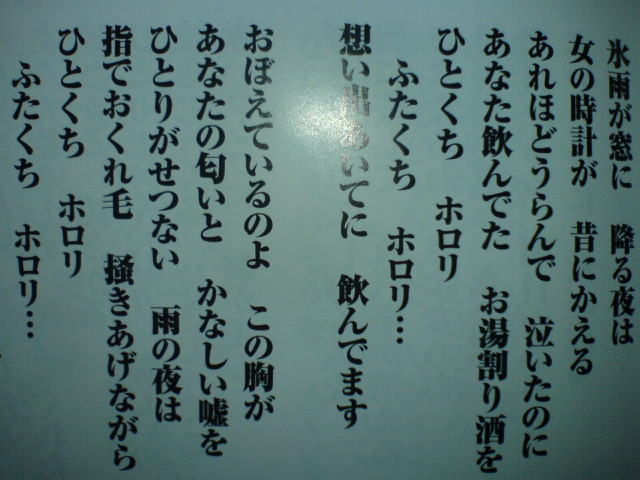 氷雨が窓に 降る夜は
女の時計が 昔にかえる
あれほどうらんで 泣いたのに
あなた飲んでた お湯割り酒を
ひとくち ホロリ
ふたくち ホロリ…
想い出あいてに 飲んでます
おぼえているのよ この胸が
あなたの匂いと かなしい嘘を
ひとりがせつない 雨の夜は
指でおくれ毛 掻きあげながら
ひとくち ホロリ
ふたくち ホロリ…